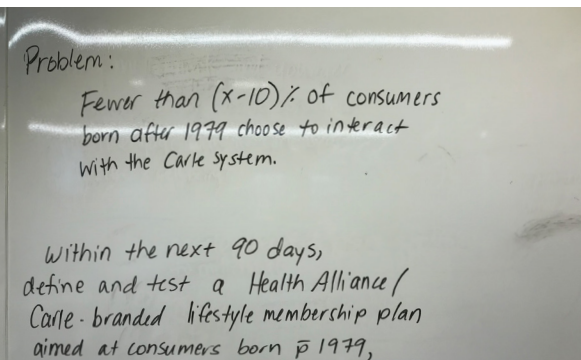 Problem:
Fewer than (x-10)% of consumers
born after 1979 choose to interact
with the Carle System.
Within the next 90 days,
define and test a Health Alliance/
Carle-branded lifestyle membership plan
aimed at consumers born p̄ 1979,